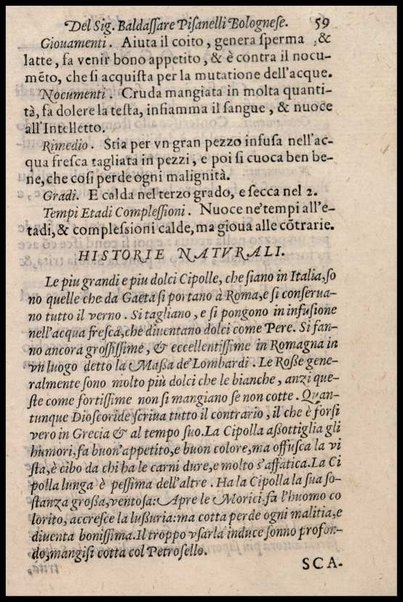 Del Sig. Baldassare Pisanelli Bolognese. 59
Giouamenti. Aiuta il coito, genera sperma, &
latte, fa venir bono appetito, & è contra il nocu-
mẽto, che si acquista per la mutatione dell'acque.
Nocumenti. Cruda mangiata in molta quanti-
tà, fa dolere la testa, infiamma il sangue, & nuoce
all'Intelletto.
Rimedio. Stia per vn gran pezzo infusa nell'ac-
qua fresca tagliata in pezzi, e poi si cuoca ben be-
ne, che cosi perde ogni malignità.
Gradi. E calda nel terzo grado, e secca nel 2.
Tempi Etadi Complessioni. Nuoce ne' tempi all'e-
tadi, & complessioni calde, ma gioua alle cõtrarie.
HISTORIE NATVRALI.
Le piu grandi e piu dolci Cipolle, che siano in Italia, so
no quelle che da Gaeta si portano à Roma, e si conserua-
no tutto il verno. Si tagliano, e si pongono in infusione
nell'acqua fresca, chè diuentano dolci come Pere. Si fan-
no ancora grossissime, & eccellentissime in Romagna in
vn luogo detto la Massa de' Lombardi. Le Rosse gene-
ralmente sono molto più dolci che le bianche, anzi que-
ste come fortissime non si mangiano se non cotte. Quan-
tunque Dioscoride scriua tutto il contrario, il che è forsi
vero in Grecia & al tempo suo. La Cipolla assottiglia gli
humori, fa buon'appetito, e buon colore, ma offusca la vi
sta, è cibo da chi ha le carni dure, e molto s'affatica. La Ci
polla lunga è pessima dell'altre. Ha la Cipolla la sua so-
stanza grossa, ventosa: Apre le Morici, fa l'huomo co
lorito, accresce la lussuria: ma cotta perde ogni malitia, e
diuenta bonissima. Il troppo vsarla induce sonno profon-
do, mangisi cotta col Petrosello.
SCA-